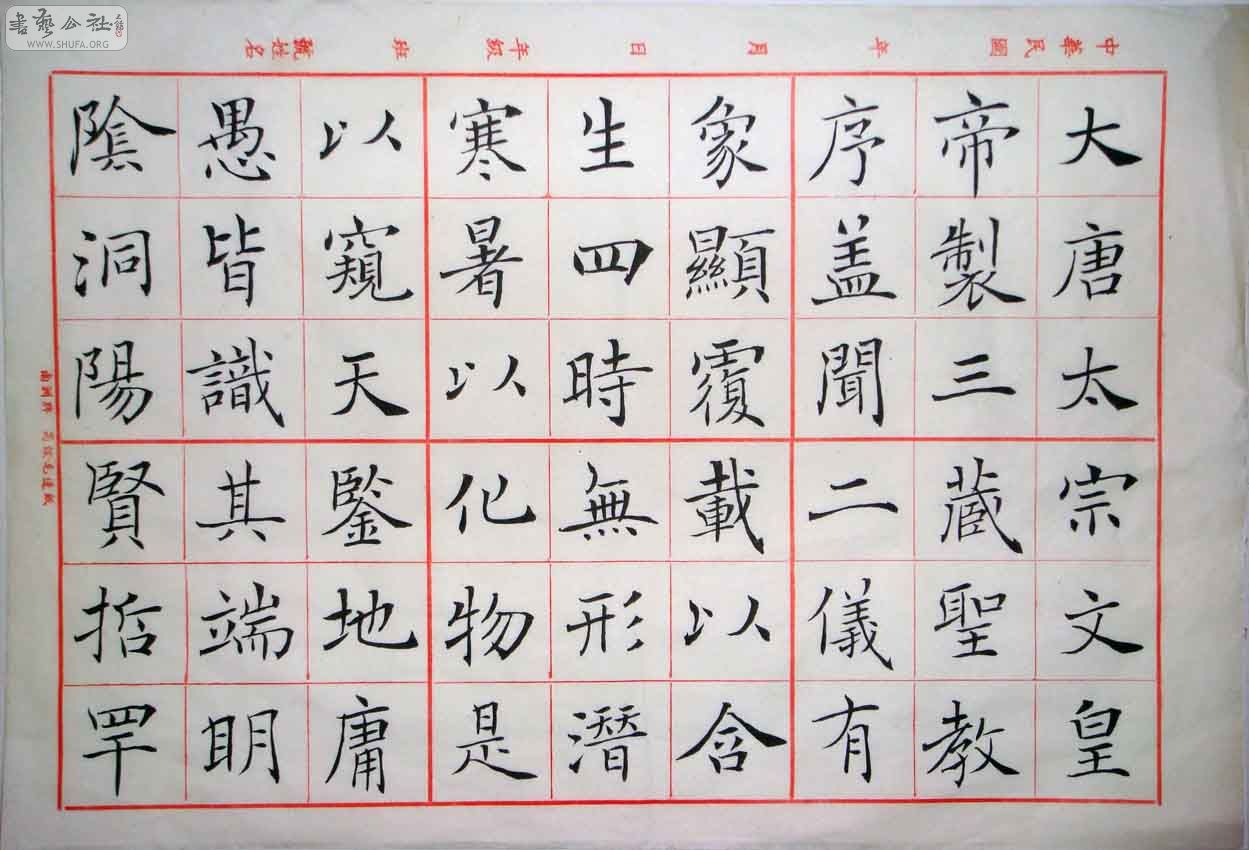 書藝公社
WWW.SHUFA.ORG
中華民國 年 月 日 年級 班 號姓名
大唐太宗文皇
帝製三藏聖教
序盖聞二儀有
象顯覆載以含
生四時無形潛
寒暑以化物是
以窺天鑒地庸
愚皆識其端明
陰洞陽賢哲罕